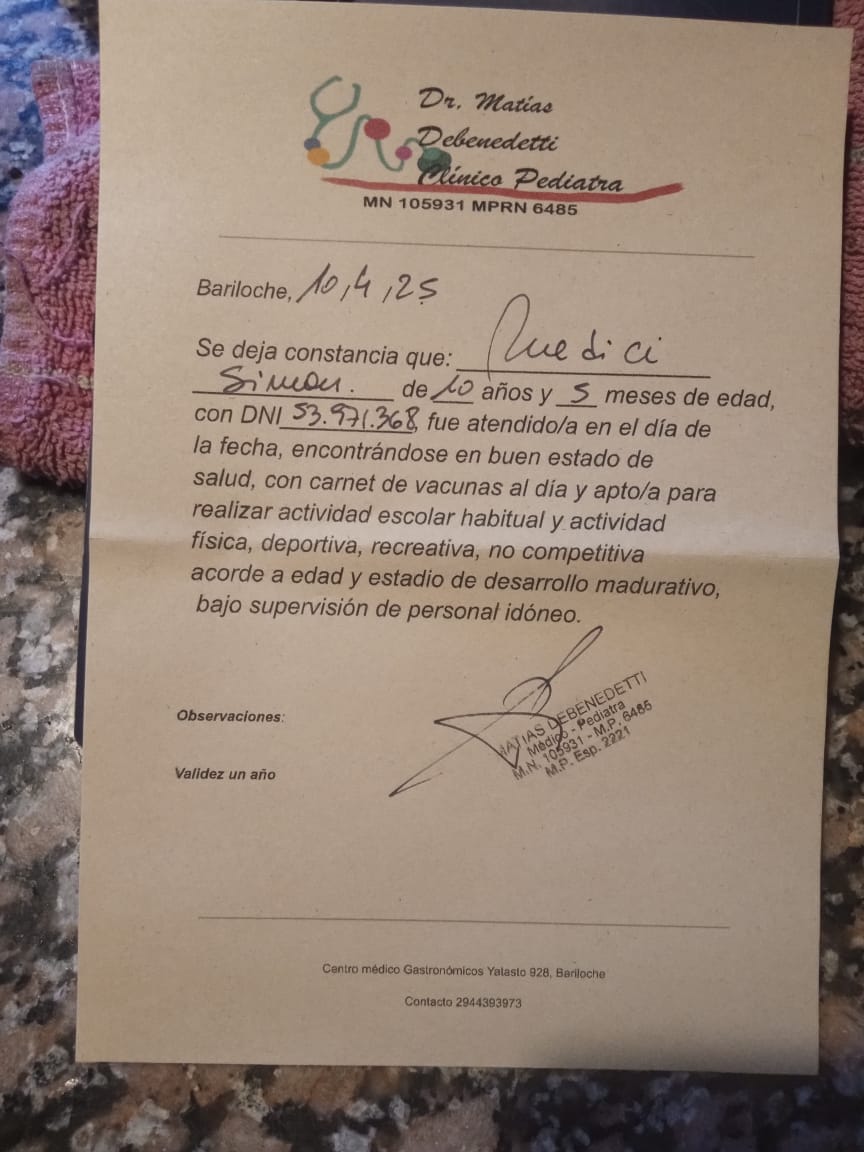 Dr. Matías
Debenedetti
Clínico Pediatra
MN 105931 MPRN 6485
Bariloche, 10,4,25
Se deja constancia que: Medici
Simon. de 10 años y 5 meses de edad,
con DNI 53.971.368, fue atendido/a en el día de
la fecha, encontrándose en buen estado de
salud, con carnet de vacunas al día y apto/a para
realizar actividad escolar habitual y actividad
física, deportiva, recreativa, no competitiva
acorde a edad y estadio de desarrollo madurativo,
bajo supervisión de personal idóneo.
MATIAS DEBENEDETTI
Médico - Pediatra
M.N. 105931 - M.P. 6485
M.P. Esp. 2221
Observaciones:
Validez un año
Centro médico Gastronómicos Yatasto 928, Bariloche
Contacto 2944393973